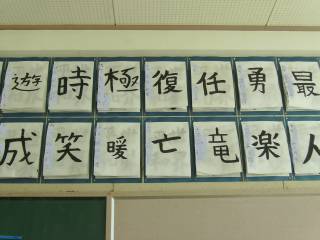 遊 時 極 復 任 勇 最
成 笑 暖 亡 竜 楽 人